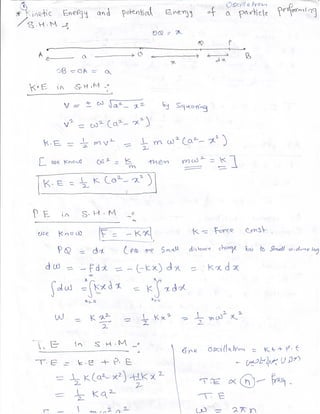 Kinetic Energy and potential Energy of a particle performing
Oscillation
S.H.M :
OQ = x
A a O Q P B
x dx
OB = OA = a
K.E in S.H.M :
V = ± ω √a² - x² by Squaring
V² = ω² (a² - x²)
K.E = 1/2 mv² = 1/2 m ω² (a² - x²)
[ we know ω² = K/m then mω² = K ]
K.E = 1/2 K (a² - x²)
P.E in S.H.M :
we know F = - Kx K = Force Const.
PQ = dx ( PQ are Small distance change
dw = - Fdx = - (-Kx) dx = Kx dx
∫dw = ∫Kx dx = K ∫x dx
W = K x²/2 = 1/2 Kx² = 1/2 mω² x²
T.E in S.H.M :
T.E = K.E + P.E
= 1/2 K (a² - x²) + 1/2 Kx²
= 1/2 Ka²
One Oscillation = K.E + P.E
T.E ∝ n - freq.
T.E
ω = 2πn